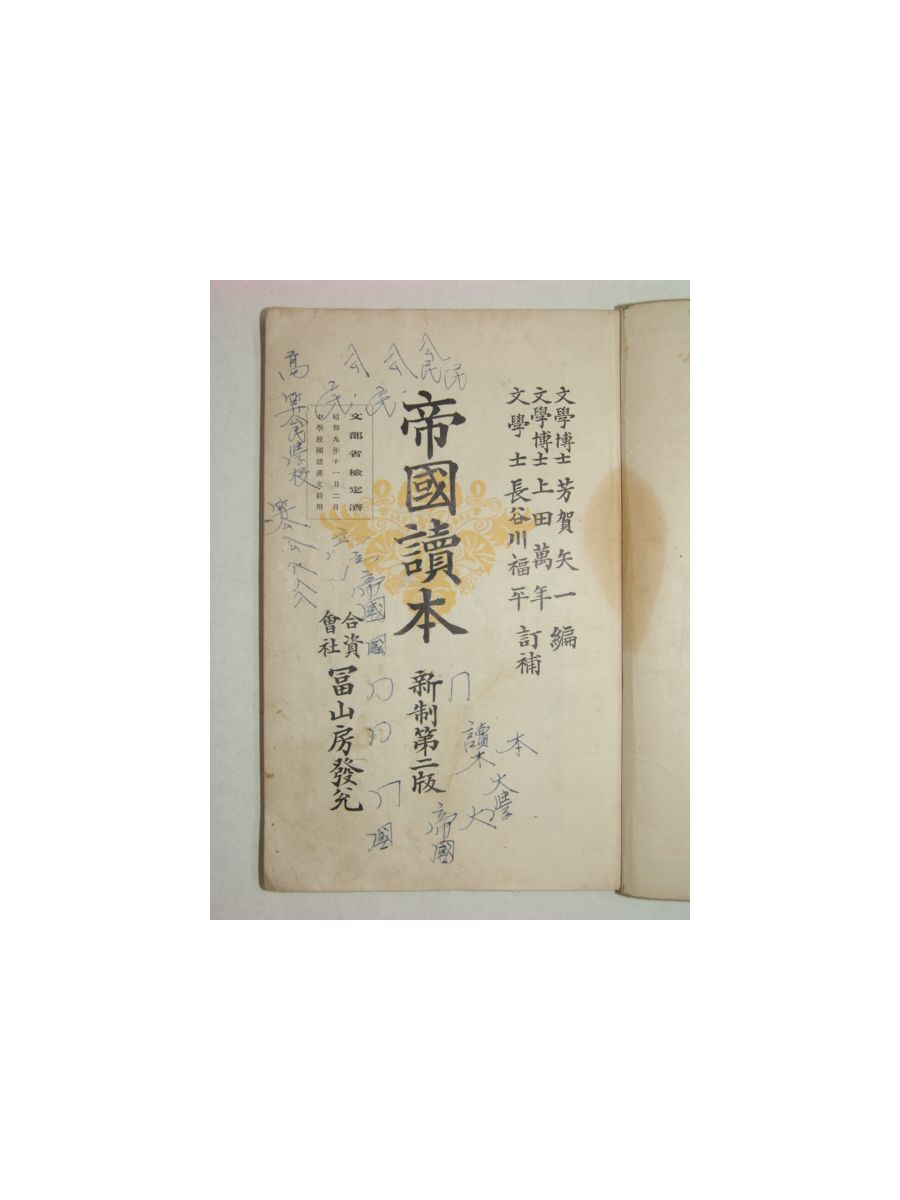 文學博士 芳賀矢一 編
文學博士 上田萬年
文學士 長谷川福平 訂補
帝國讀本
新制第二版
文部省檢定濟
昭和九年十一月二日
中學校國語漢文科用
合資
會社
冨山房發兌
公民
民
公
公
民
民
高等公民學校
帝國
國
國
讀本
本
大學
大
帝國